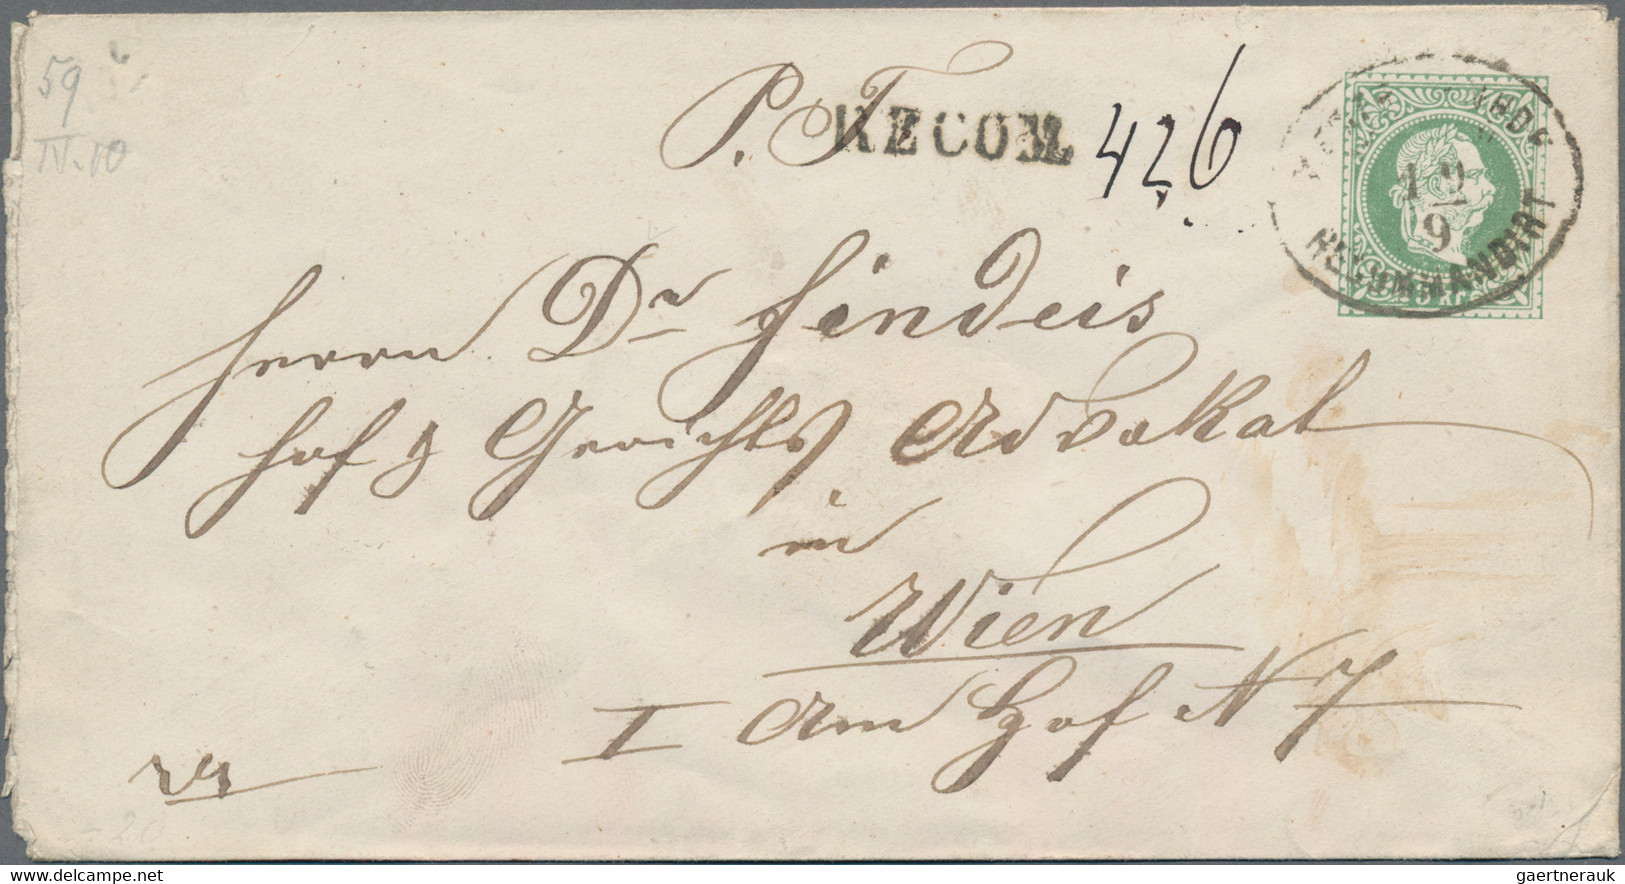 59
IV. 10
P. T.
RECOM.
426
19
9
RECOMMANDIRT
Herrn Dr Findeis
Hof & Gerichts Advokat
in
Wien
I Am Hof N 7
www.delcampe.net
gaertnerauk